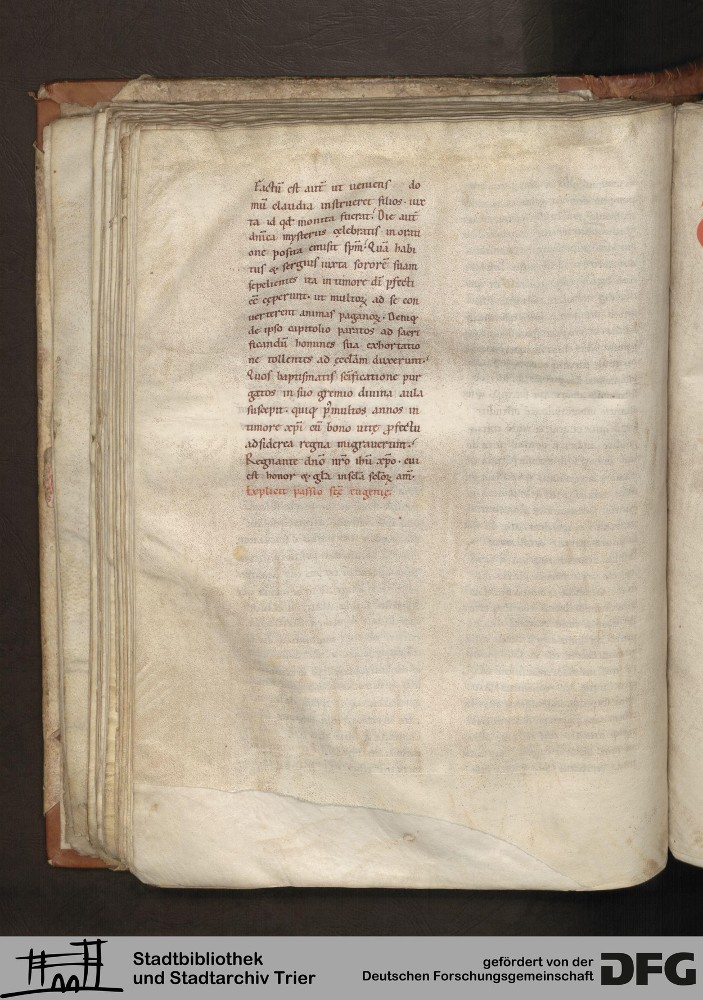 Factū est autē ut veniens do
mū claudia instrueret filios. iux
ta id qđ monita fuerat. Die autē
dn̄ica mysteriis cęlebratis in orati
one posita emisit sp̄m. Quā habi
tus & sergius iuxta sororē suam
sepelientes ita in timore dī pfecti
eē ceperunt. ut multoꝝ ad se con
verterent animas paganoꝝ. Deniq;
de ipso capitolio paratos ad sacri
ficandū homines sua exhortatio
ne tollentes ad ęcclām duxerunt.
Quos baptismatis sc̄ificatione pur
gatos in suo gremio divina aula
suscepit. quiq; p multos annos in
timore xp̄i cū bono vitę pfectu
ad siderea regna migraverunt.
Regnante dn̄o nr̄o ihū xp̄o. cui
est honor & gl̄a in sc̄la sc̄loꝝ am̄.
Explicit passio sc̄ę eugenię.
Stadtbibliothek
und Stadtarchiv Trier
gefördert von der
Deutschen Forschungsgemeinschaft
DFG